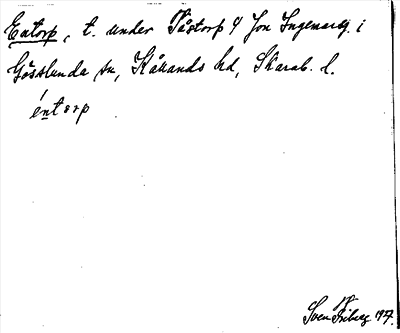 Entorp, t. under Tåstorp 4 Jon Ingemarsg. i
Gösslunda sn, Kållands hd, Skarab. l.
éntorp
Sven Friberg 1927.